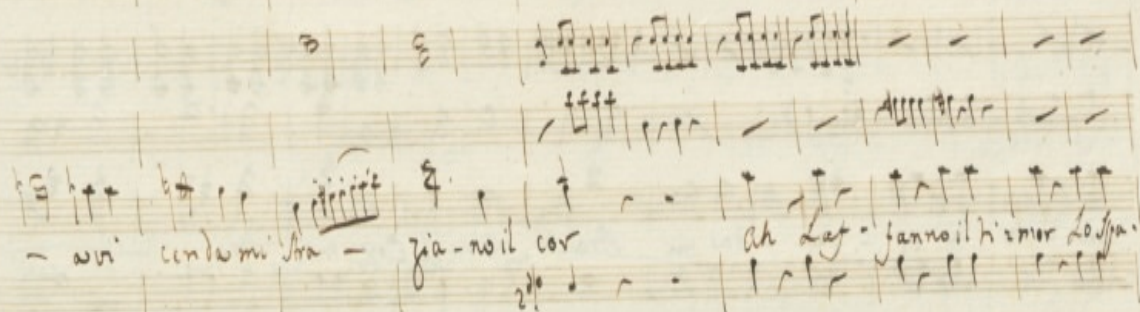 - a vi cenda mi stra - zia-no il cor ah L'af-fanno il timor Lo spa-